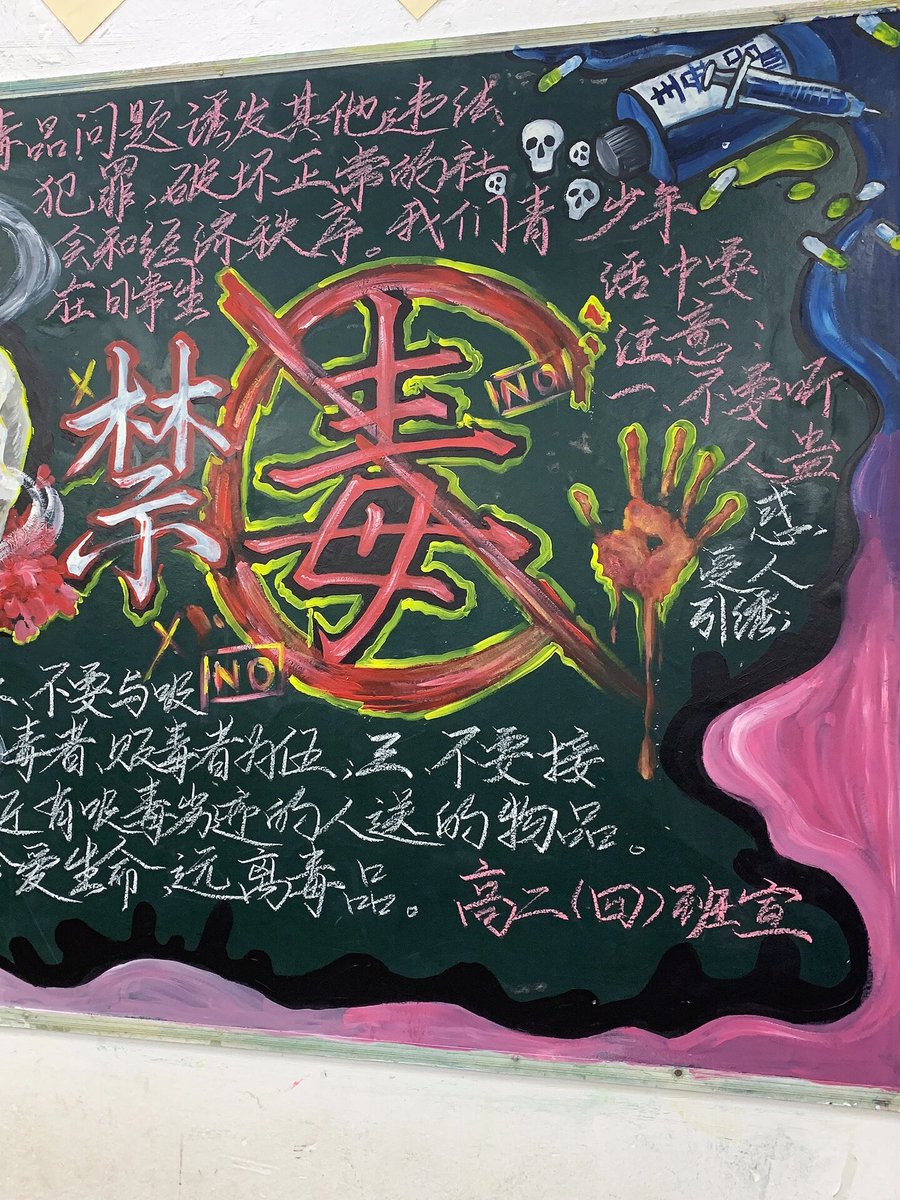 毒品问题诱发其他违法
犯罪、破坏正常的社
会和经济秩序。我们青少年
在日常生
活中要
注意：
一、不要听
人蛊
惑
受人
引诱；
禁毒
NO
NO
二、不要与吸
毒者,贩毒者为伍、三、不要接
近有吸毒劣迹的人送的物品。
爱生命、远离毒品。
高二(四)班宣
毒品